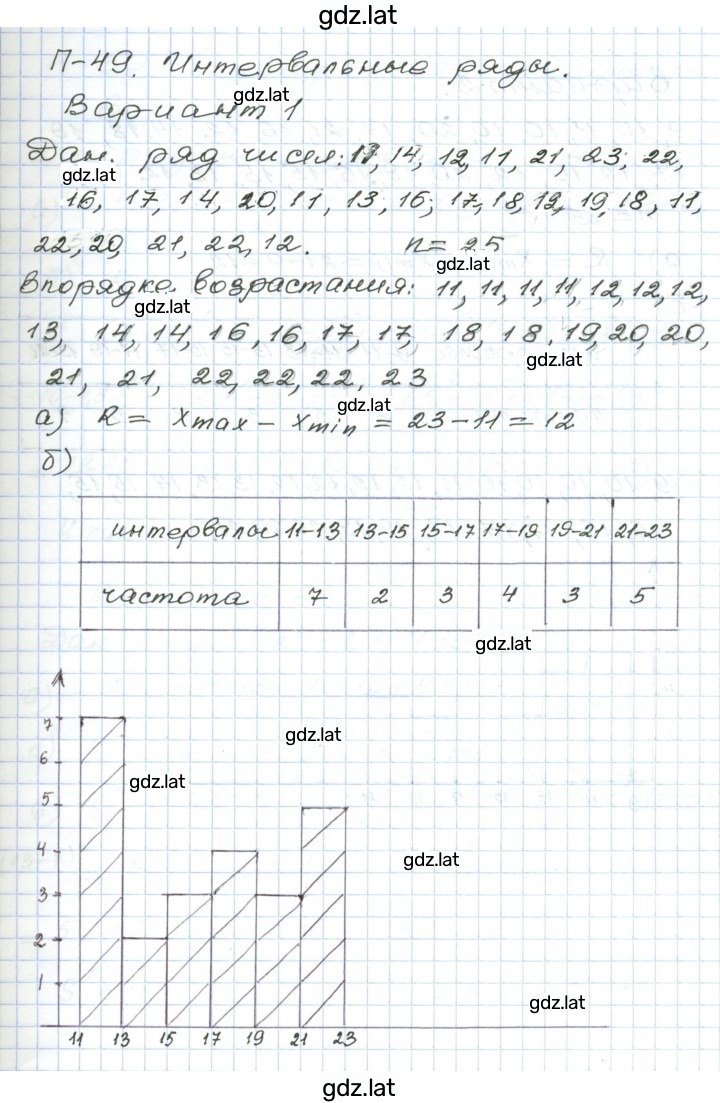 gdz.lat
П-49. Интервальные ряды.
gdz.lat
Вариант 1
Дан. ряд чисел: 11, 14, 12, 11, 21, 23, 22,
gdz.lat
16, 17, 14, 20, 11, 13, 16, 17, 18, 12, 19, 18, 11,
22, 20, 21, 22, 12. n = 25
gdz.lat
В порядке возрастания: 11, 11, 11, 11, 12, 12, 12,
gdz.lat
13, 14, 14, 16, 16, 17, 17, 18, 18, 19, 20, 20,
gdz.lat
21, 21, 22, 22, 22, 23
gdz.lat
а) R = xmax - xmin = 23 - 11 = 12
б)
интервалы 11-13 13-15 15-17 17-19 19-21 21-23
частота 7 2 3 4 3 5
gdz.lat
7
gdz.lat
6
gdz.lat
5
4
gdz.lat
3
2
1
gdz.lat
11 13 15 17 19 21 23
gdz.lat